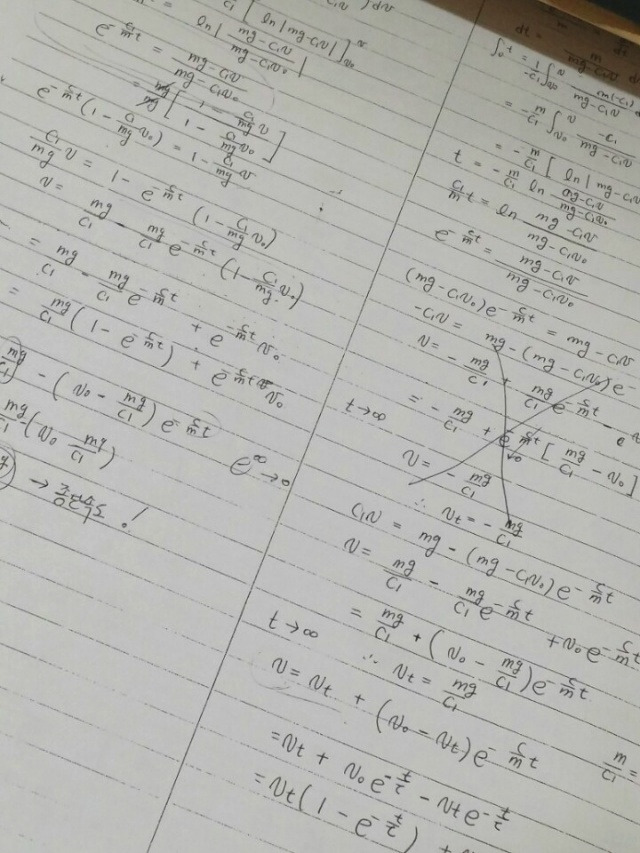 = ln | mg-c₁v / mg-c₁v₀ |
e^(-c/m t) = mg-c₁v / mg-c₁v₀
e^(-c/m t) (1 - c₁/mg v₀) = 1 - c₁/mg v
c₁/mg v = 1 - e^(-c/m t) (1 - c₁/mg v₀)
v = mg/c₁ - mg/c₁ e^(-c/m t) (1 - c₁/mg v₀)
= mg/c₁ - mg/c₁ e^(-c/m t) + e^(-c/m t) v₀
= mg/c₁ (1 - e^(-c/m t)) + e^(-c/m t) v₀
mg/c₁ - (v₀ - mg/c₁) e^(-c/m t)
mg/c₁ - (v₀ - mg/c₁)
e^∞ → ∞
→ 종단속도!
= -m/c₁ ∫ -c₁ / mg-c₁v
= -m/c₁ [ ln | mg-c₁v
t = -m/c₁ ln mg-c₁v / mg-c₁v₀
c₁/m t = ln mg-c₁v / mg-c₁v₀
e^(-c/m t) = mg-c₁v / mg-c₁v₀
(mg-c₁v₀) e^(-c/m t) = mg-c₁v
-c₁v = mg - (mg-c₁v₀) e^-
v = -mg/c₁ + mg/c₁ e^(-c/m t) -
= -mg/c₁ + e^(-c/m t) [ mg/c₁ - v₀ ]
t→∞
v = -mg/c₁
∴ vt = -mg/c₁
c₁v = mg - (mg-c₁v₀) e^(-c/m t)
v = mg/c₁ - mg/c₁ e^(-c/m t) + v₀ e^(-c/m t)
= mg/c₁ + (v₀ - mg/c₁) e^(-c/m t)
t→∞ ∴ vt = mg/c₁
v = vt + (v₀ - vt) e^(-c/m t) m/c₁ =
= vt + v₀ e^(-t/τ) - vt e^(-t/τ)
= vt (1 - e^(-t/τ)) +